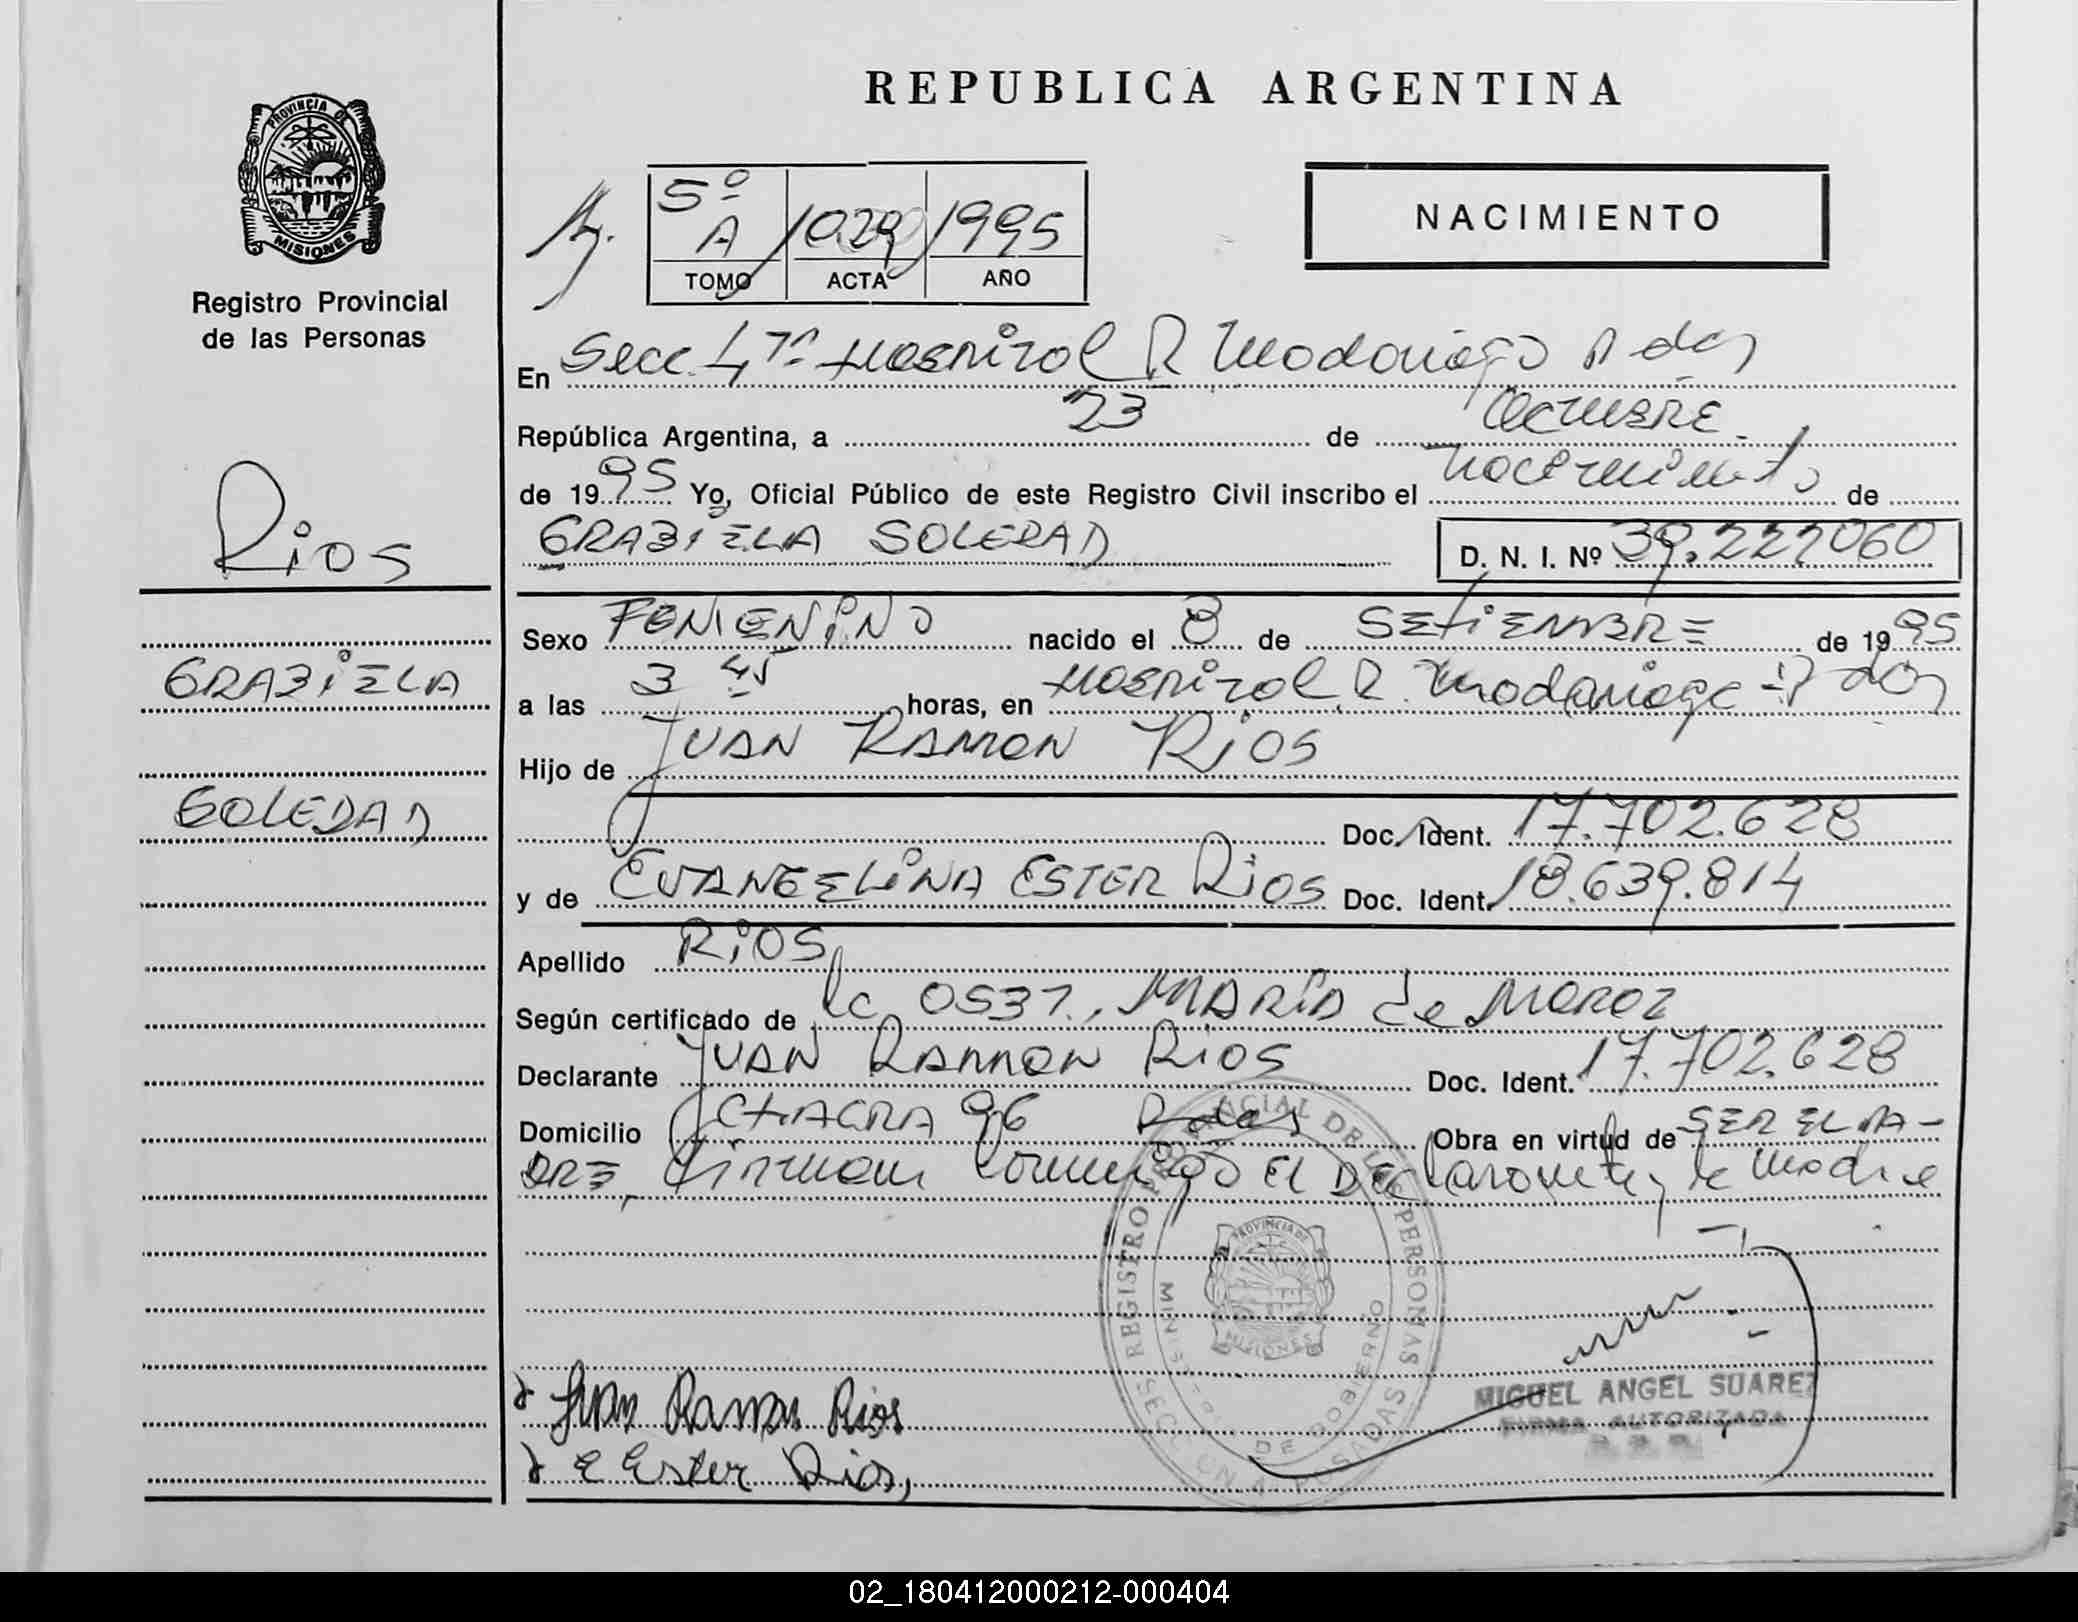 REPUBLICA ARGENTINA
PROVINCIA DE
MISIONES
Registro Provincial
de las Personas
5º
A 1029 1995
TOMO ACTA AÑO
NACIMIENTO
En Secc. 4ta Hospital R Madariaga Pdas
República Argentina, a 23 de Octubre
de 1995 Yo, Oficial Público de este Registro Civil inscribo el nacimiento de
GRABIELA SOLEDAD D. N. I. Nº 39.222060
Rios
GRABIELA
SOLEDAD
Sexo FEMENINO nacido el 8 de SETIEMBRE de 1995
a las 3 45 horas, en Hospital R. Madariaga - Pdas
Hijo de JUAN RAMON RIOS
Doc. Ident. 17.702.628
y de EVANGELINA ESTER RIOS Doc. Ident. 18.639.814
Apellido RIOS
Según certificado de la 0537, MARIA de
Declarante JUAN RAMON RIOS Doc. Ident. 17.702.628
Domicilio CHACRA 96 Pdas Obra en virtud de SER EL PA-
DRE, Firman conmigo El DEClarante y la madre
REGISTRO PROVINCIAL DE LAS PERSONAS
MINISTERIO DE GOBIERNO
PROVINCIA DE
MISIONES
POSADAS
Juan Ramon Rios
E Ester Rios,
MIGUEL ANGEL SUAREZ
FIRMA AUTORIZADA
02_180412000212-000404